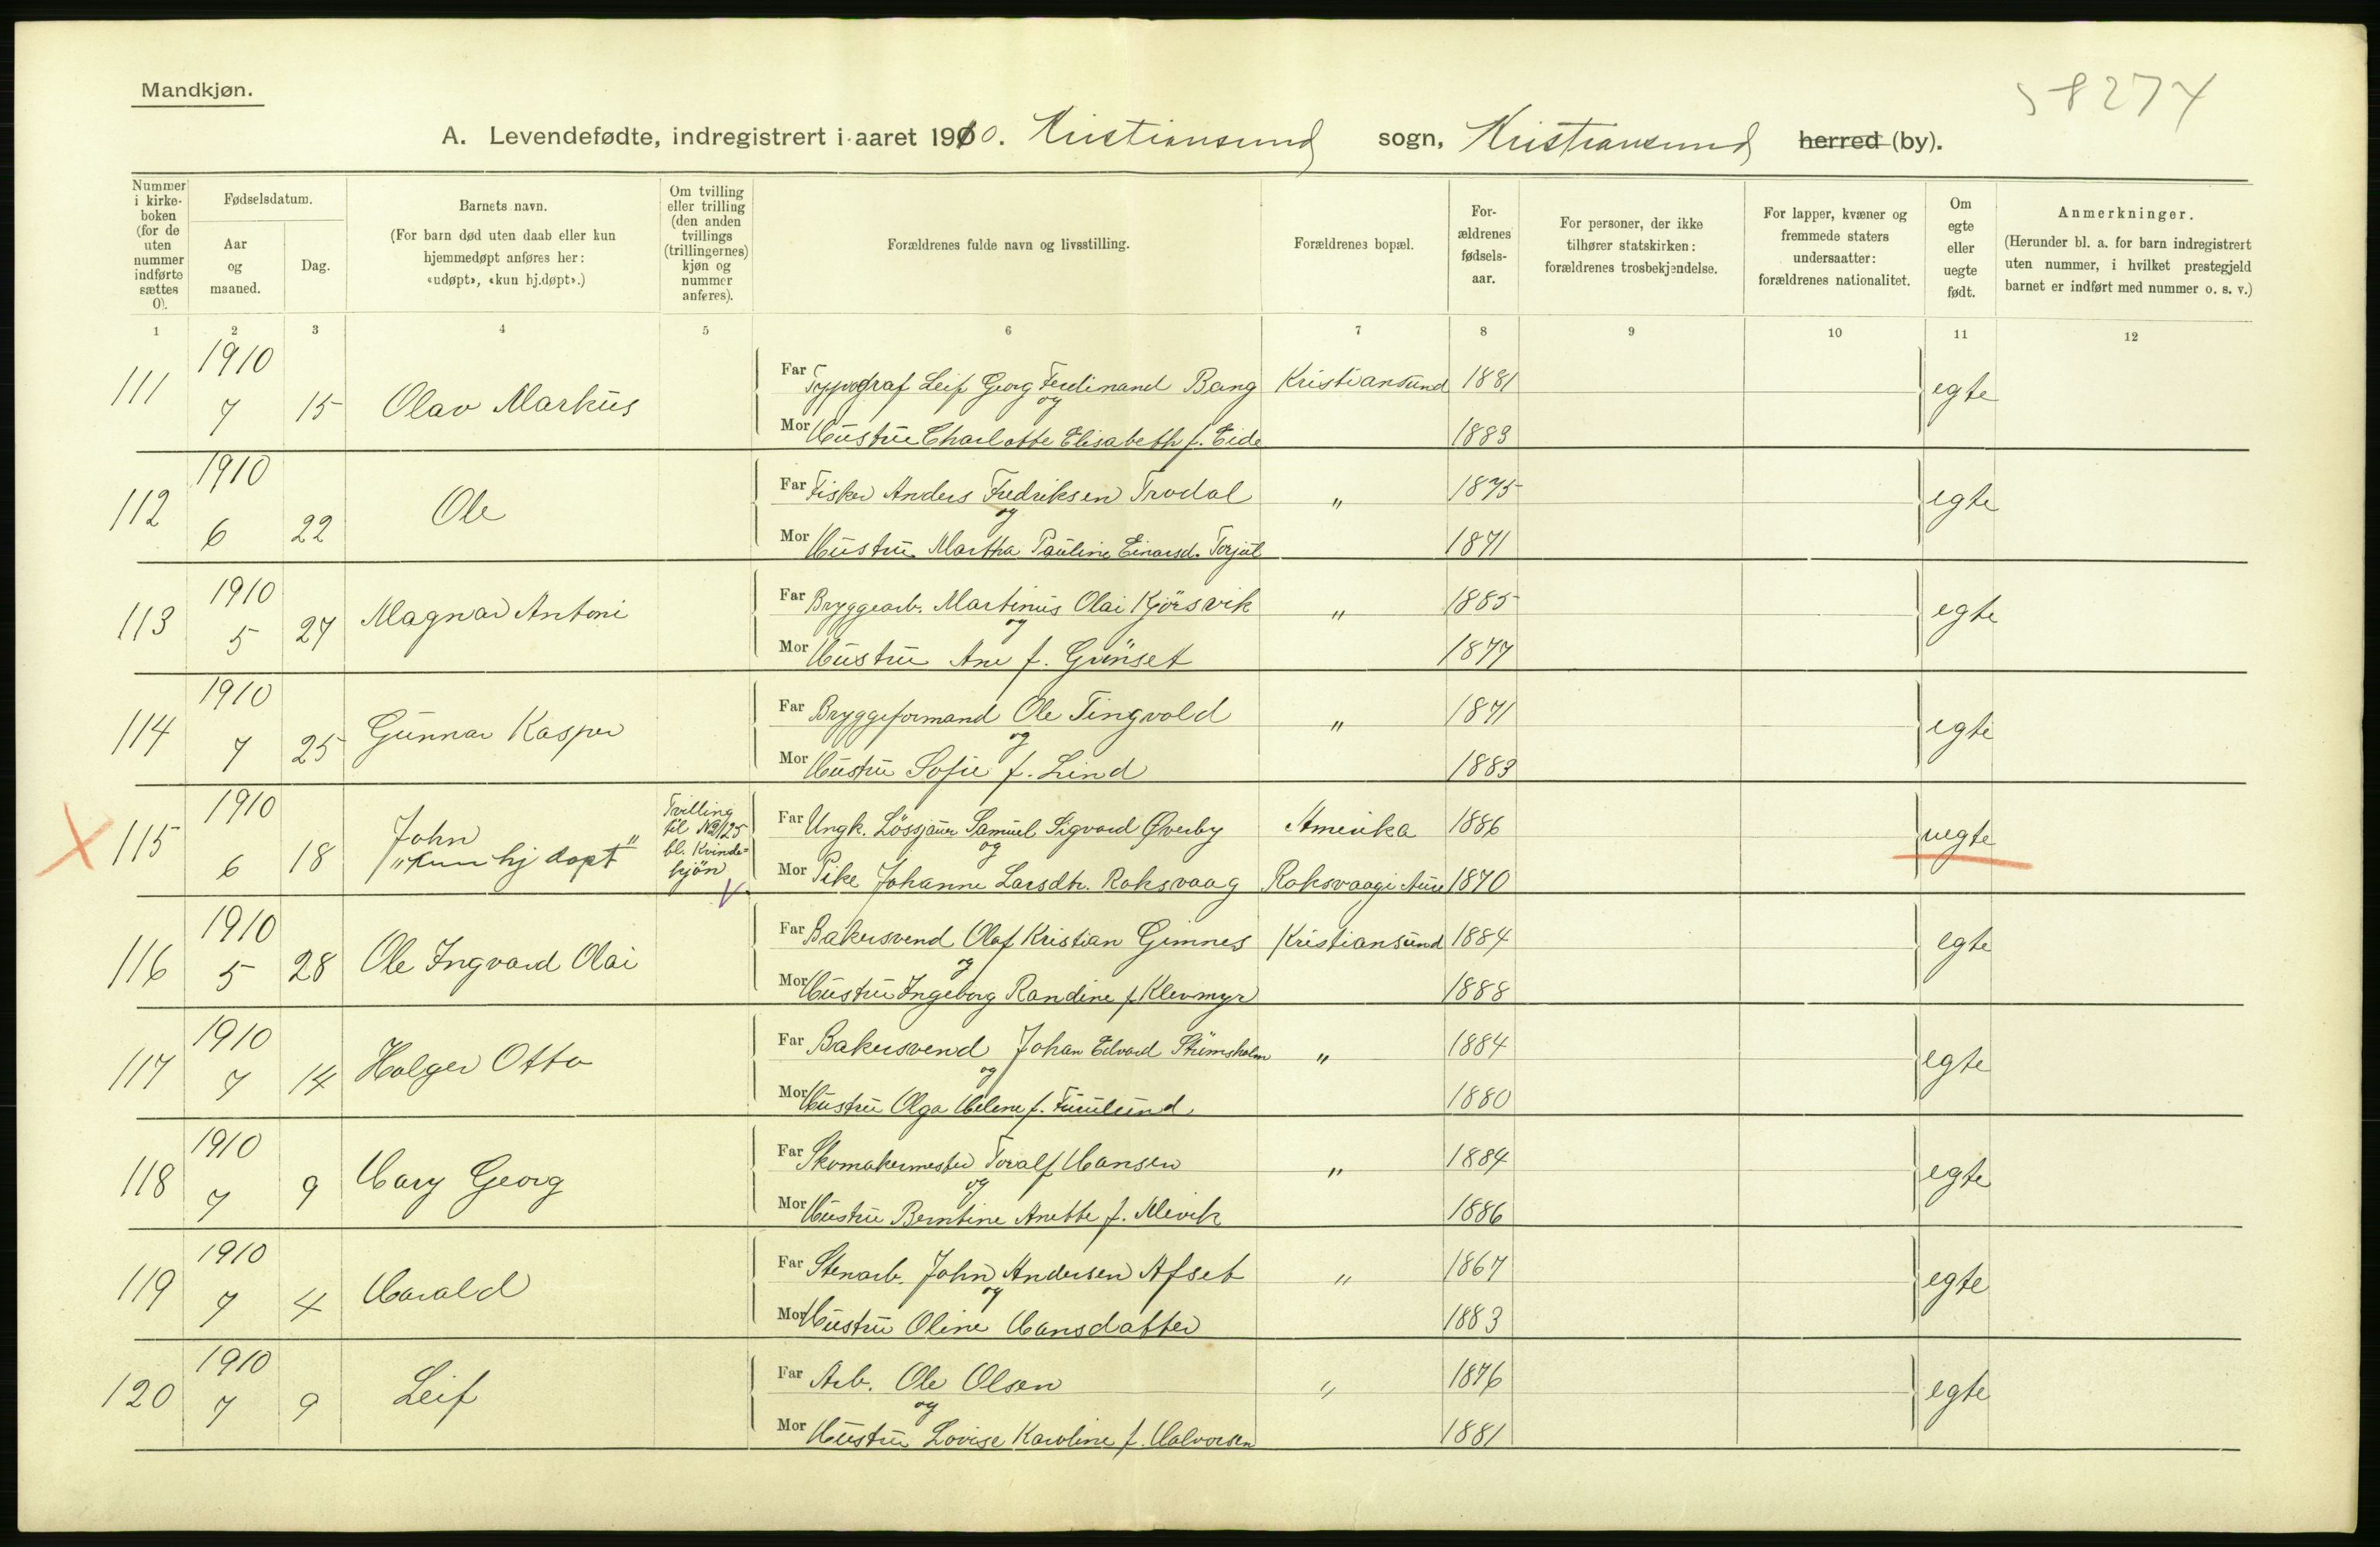 Mandkjøn.
58274
A. Levendefødte, indregistrert i aaret 1910. Kristiansund sogn, Kristiansund herred (by).
Nummer i kirke- boken (for de uten nummer indførte sættes 0).
Fødselsdatum.
Aar og maaned.
Dag.
Barnets navn.
(For barn død uten daab eller kun hjemmedøpt anføres her: «udøpt», «kun hj.døpt».)
Om tvilling eller trilling (den anden tvillings (trillingernes) kjøn og nummer anføres).
Forældrenes fulde navn og livsstilling.
Forældrenes bopæl.
For- ældrenes fødsels- aar.
For personer, der ikke tilhører statskirken: forældrenes trosbekjendelse.
For lapper, kvæner og fremmede staters undersaatter: forældrenes nationalitet.
Om egte eller uegte født.
Anmerkninger.
(Herunder bl. a. for barn indregistrert uten nummer, i hvilket prestegjeld barnet er indført med nummer o. s. v.)
1 2 3 4 5 6 7 8 9 10 11 12
111 1910 7 15 Olav Markus
Far Typograf Leif Georg Ferdinand Bang Kristiansund 1881 egte
og
Mor Hustru Charlotte Elisabeth f. Eide 1883
112 1910 6 22 Ole
Far Fisker Anders Fredriksen Trodal " 1875 egte
og
Mor Hustru Martha Pauline Einarsd. Torjul 1871
113 1910 5 27 Magnar Antoni
Far Bryggearb. Martinus Olai Kjörsvik " 1885 egte
og
Mor Hustru Ane f. Grönset 1877
114 1910 7 25 Gunnar Kasper
Far Bryggeformand Ole Tingvold " 1871 egte
og
Mor Hustru Sofie f. Lind 1883
115 1910 6 18 John "kun hj døpt" Tvilling til No 125 bl. Kvinde= kjön
Far Ungk. Lössjauer Samuel Sigvard Øverby Amerika 1886 uegte
og
Mor Pike Johanne Larsdtr. Roksvaag Roksvaag i Aure 1870
116 1910 5 28 Ole Ingvard Olai
Far Bakersvend Olaf Kristian Gimnes Kristiansund 1884 egte
og
Mor Hustru Ingeborg Randine f Klevmyr 1888
117 1910 7 14 Holger Otto
Far Bakersvend Johan Edvard Strömsholm " 1884 egte
og
Mor Hustru Olga Helene f. Furulund 1880
118 1910 7 9 Hary Georg
Far Skomakermester Toralf Hansen " 1884 egte
og
Mor Hustru Berntine Anette f. Alevik 1886
119 1910 7 4 Harald
Far Stenarb. John Andersen Afset " 1867 egte
og
Mor Hustru Oline Hansdatter 1883
120 1910 7 9 Leif
Far Arb. Ole Olsen " 1876 egte
og
Mor Hustru Lovise Karoline f. Halvorsen 1881